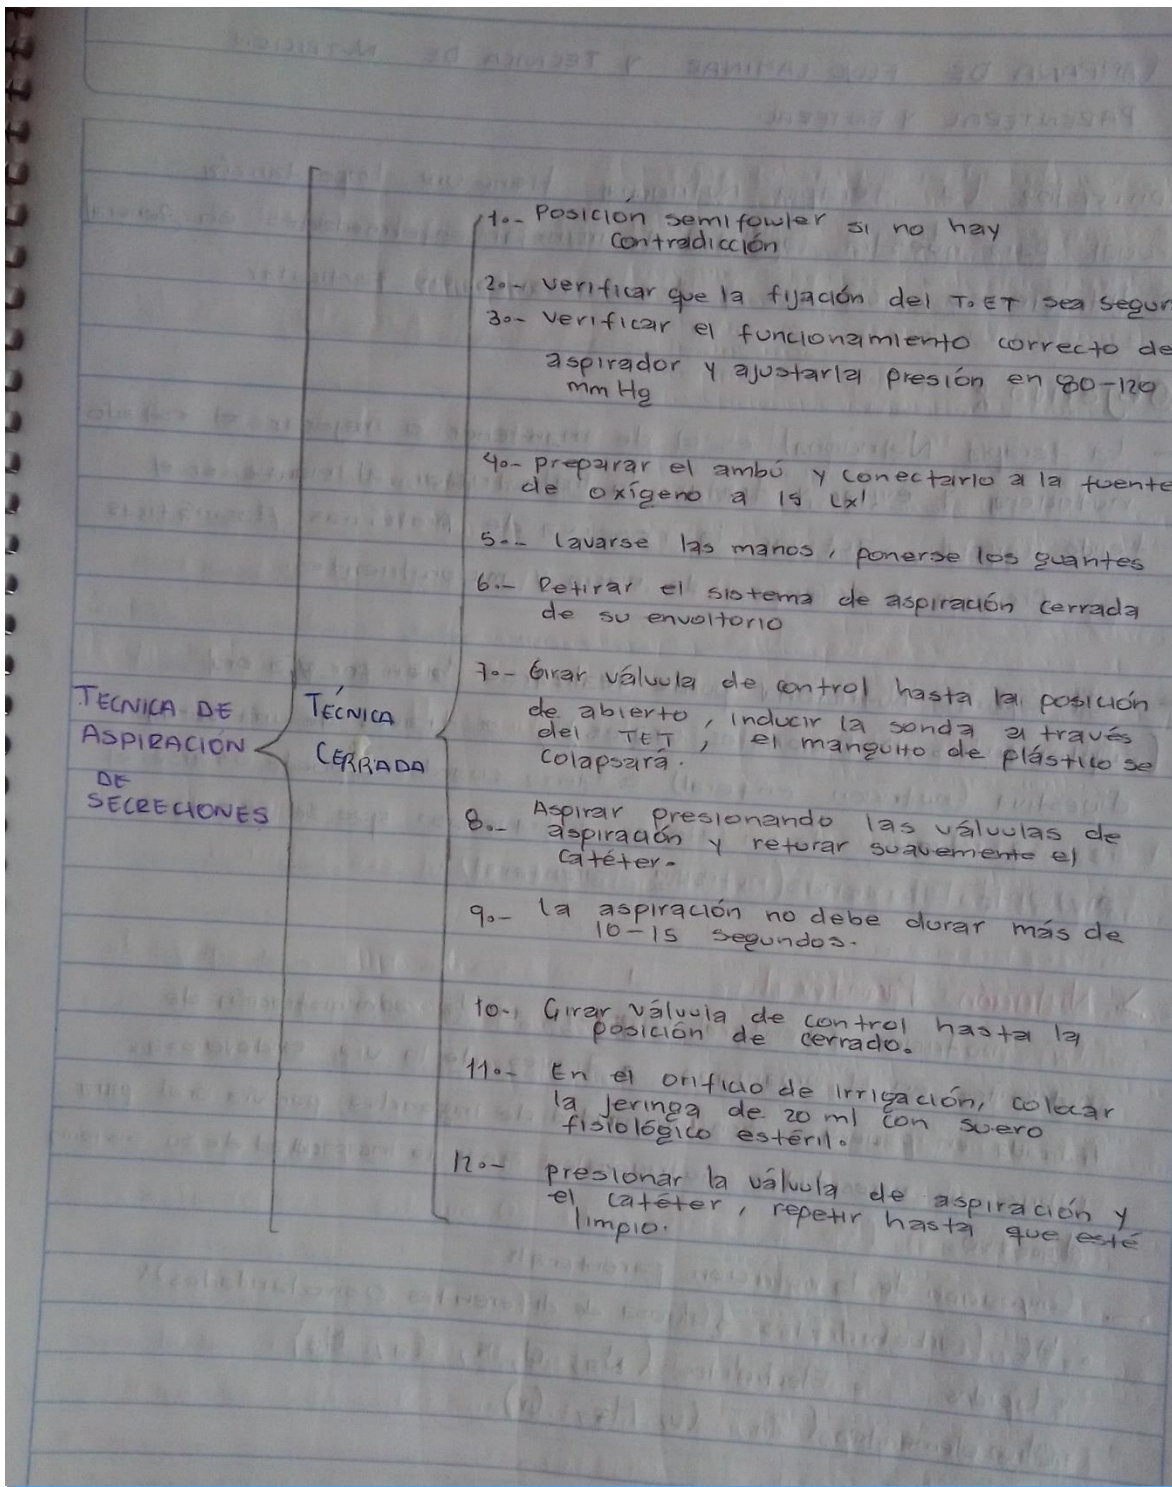 TECNICA DE
ASPIRACIÓN
DE
SECRECIONES
TÉCNICA
CERRADA
1.- Posición semifowler si no hay
contradicción
2.- verificar que la fijación del T.ET sea segur
3.- Verificar el funcionamiento correcto de
aspirador y ajustarla presión en 80-120
mmHg
4.- preparar el ambú y conectarlo a la fuente
de oxígeno a 15 Lx'
5.- lavarse las manos, ponerse los guantes
6.- Retirar el sistema de aspiración cerrada
de su envoltorio
7.- Girar válvula de control hasta la posición
de abierto, inducir la sonda a través
del TET, el manguito de plástico se
colapsará.
8.- Aspirar presionando las válvulas de
aspiración y returar suavemente el
catéter.
9.- la aspiración no debe durar más de
10-15 segundos.
10.- Girar válvula de control hasta la
posición de cerrado.
11.- En el orificio de irrigación, colocar
la jeringa de 20 ml con suero
fisiológico estéril.
12.- presionar la válvula de aspiración y
el catéter, repetir hasta que esté
limpio.